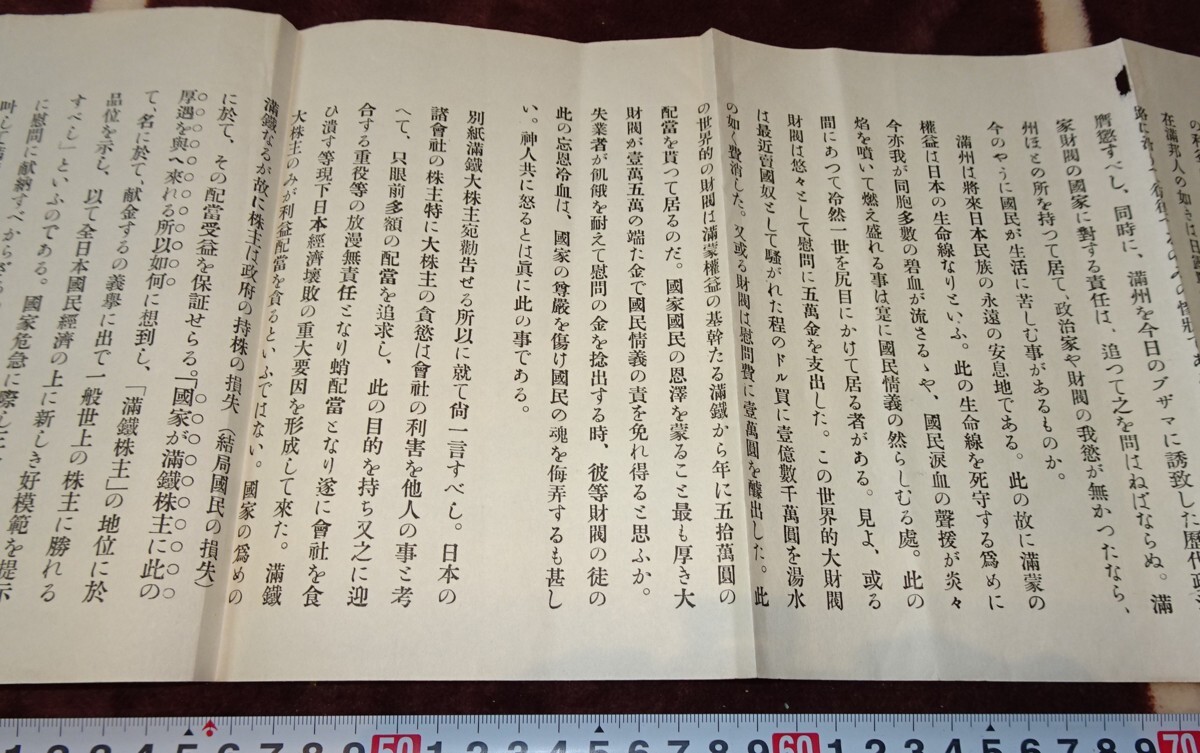 在滿邦人の如きは
膺懲すべし、同時に、滿州を今日のブザマに誘致した歷代政
家財閥の國家に對する責任は、追つて之を問はねばならぬ。滿
州ほとの所を持つて居て、政治家や財閥の我慾が無かつたなら、
今のやうに國民が生活に苦しむ事があるものか。
滿州は將來日本民族の永遠の安息地である。此の故に滿蒙の
權益は日本の生命線なりといふ。此の生命線を死守する爲めに
今亦我が同胞多數の碧血が流さるゝや、國民淚血の聲援が炎々
焰を噴いて燃え盛れる事は寔に國民情義の然らしむる處。此の
間にあつて冷然一世を尻目にかけて居る者がある。見よ、或る
財閥は悠々として慰問に五萬金を支出した。この世界的大財閥
は最近賣國奴として騷がれた程のドル買に壹億數千萬圓を湯水
の如く費消した。又或る財閥は慰問費に壹萬圓を醵出した。此
の世界的の財閥は滿蒙權益の基幹たる滿鐵から年に五拾萬圓の
配當を貰つて居るのだ。國家國民の恩澤を蒙ること最も厚き大
財閥が壹萬五萬の端た金で國民情義の責を免れ得ると思ふか。
失業者が飢餓を耐えて慰問の金を捻出する時、彼等財閥の徒の
此の忘恩冷血は、國家の尊嚴を傷け國民の魂を侮弄するも甚し
い。神人共に怒るとは眞に此の事である。
別紙滿鐵大株主宛勸告せる所以に就て尙一言すべし。日本の
諸會社の株主特に大株主の貪慾は會社の利害を他人の事と考
へて、只眼前多額の配當を追求し、此の目的を持ち又之に迎
合する重役等の放漫無責任となり蛸配當となり遂に會社を食
ひ潰す等現下日本經濟壞敗の重大要因を形成して來た。滿鐵
大株主のみが利益配當を貪るといふではない。國家の爲めの
滿鐵なるが故に株主は政府の持株の損失(結局國民の損失)
に於て、その配當受益を保証せらる。「國家が滿鐵株主に此の
厚遇を與へ來れる所以如何に想到し、「滿鐵株主」の地位に於
て、名に於て、献金するの義擧に出で一般世上の株主に勝れる
品位を示し、以て全日本國民經濟の上に新しき好模範を提示
すべし」といふのである。國家危急に際し
に慰問に献納すべからざ